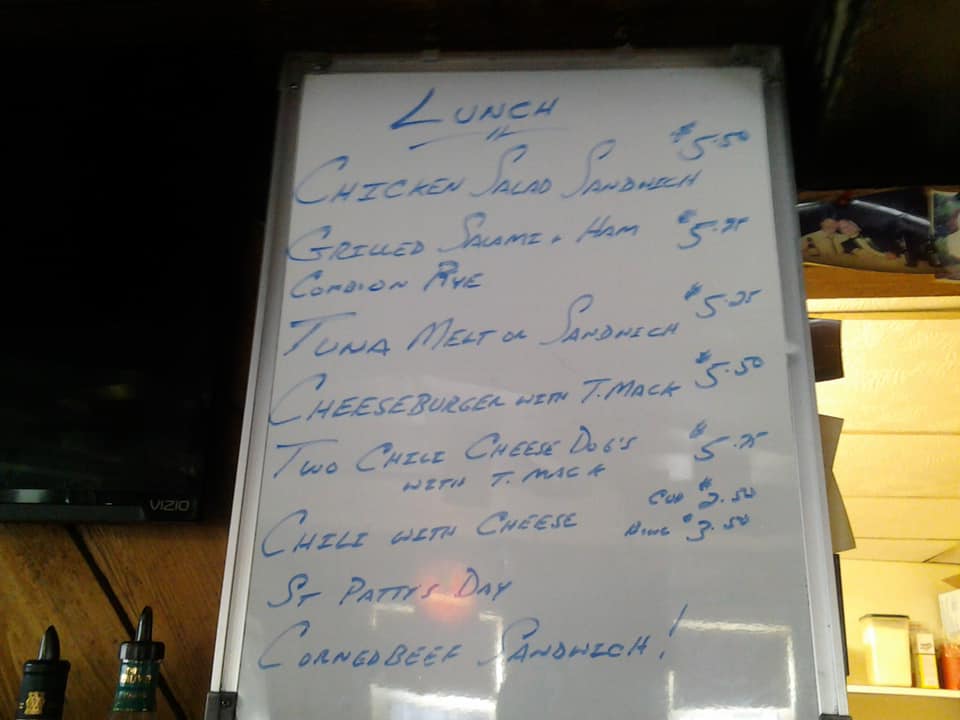 LUNCH
CHICKEN SALAD SANDWICH $5.50
GRILLED SALAMI + HAM $5.75
COMBO ON RYE
TUNA MELT OR SANDWICH $5.25
CHEESEBURGER WITH T.MACK $5.50
TWO CHILI CHEESE DOG'S $5.75
WITH T. MACK
CHILI WITH CHEESE CUP $2.50
BOWL $3.50
ST PATTYS DAY
CORNEDBEEF SANDWICH!
VIZIO